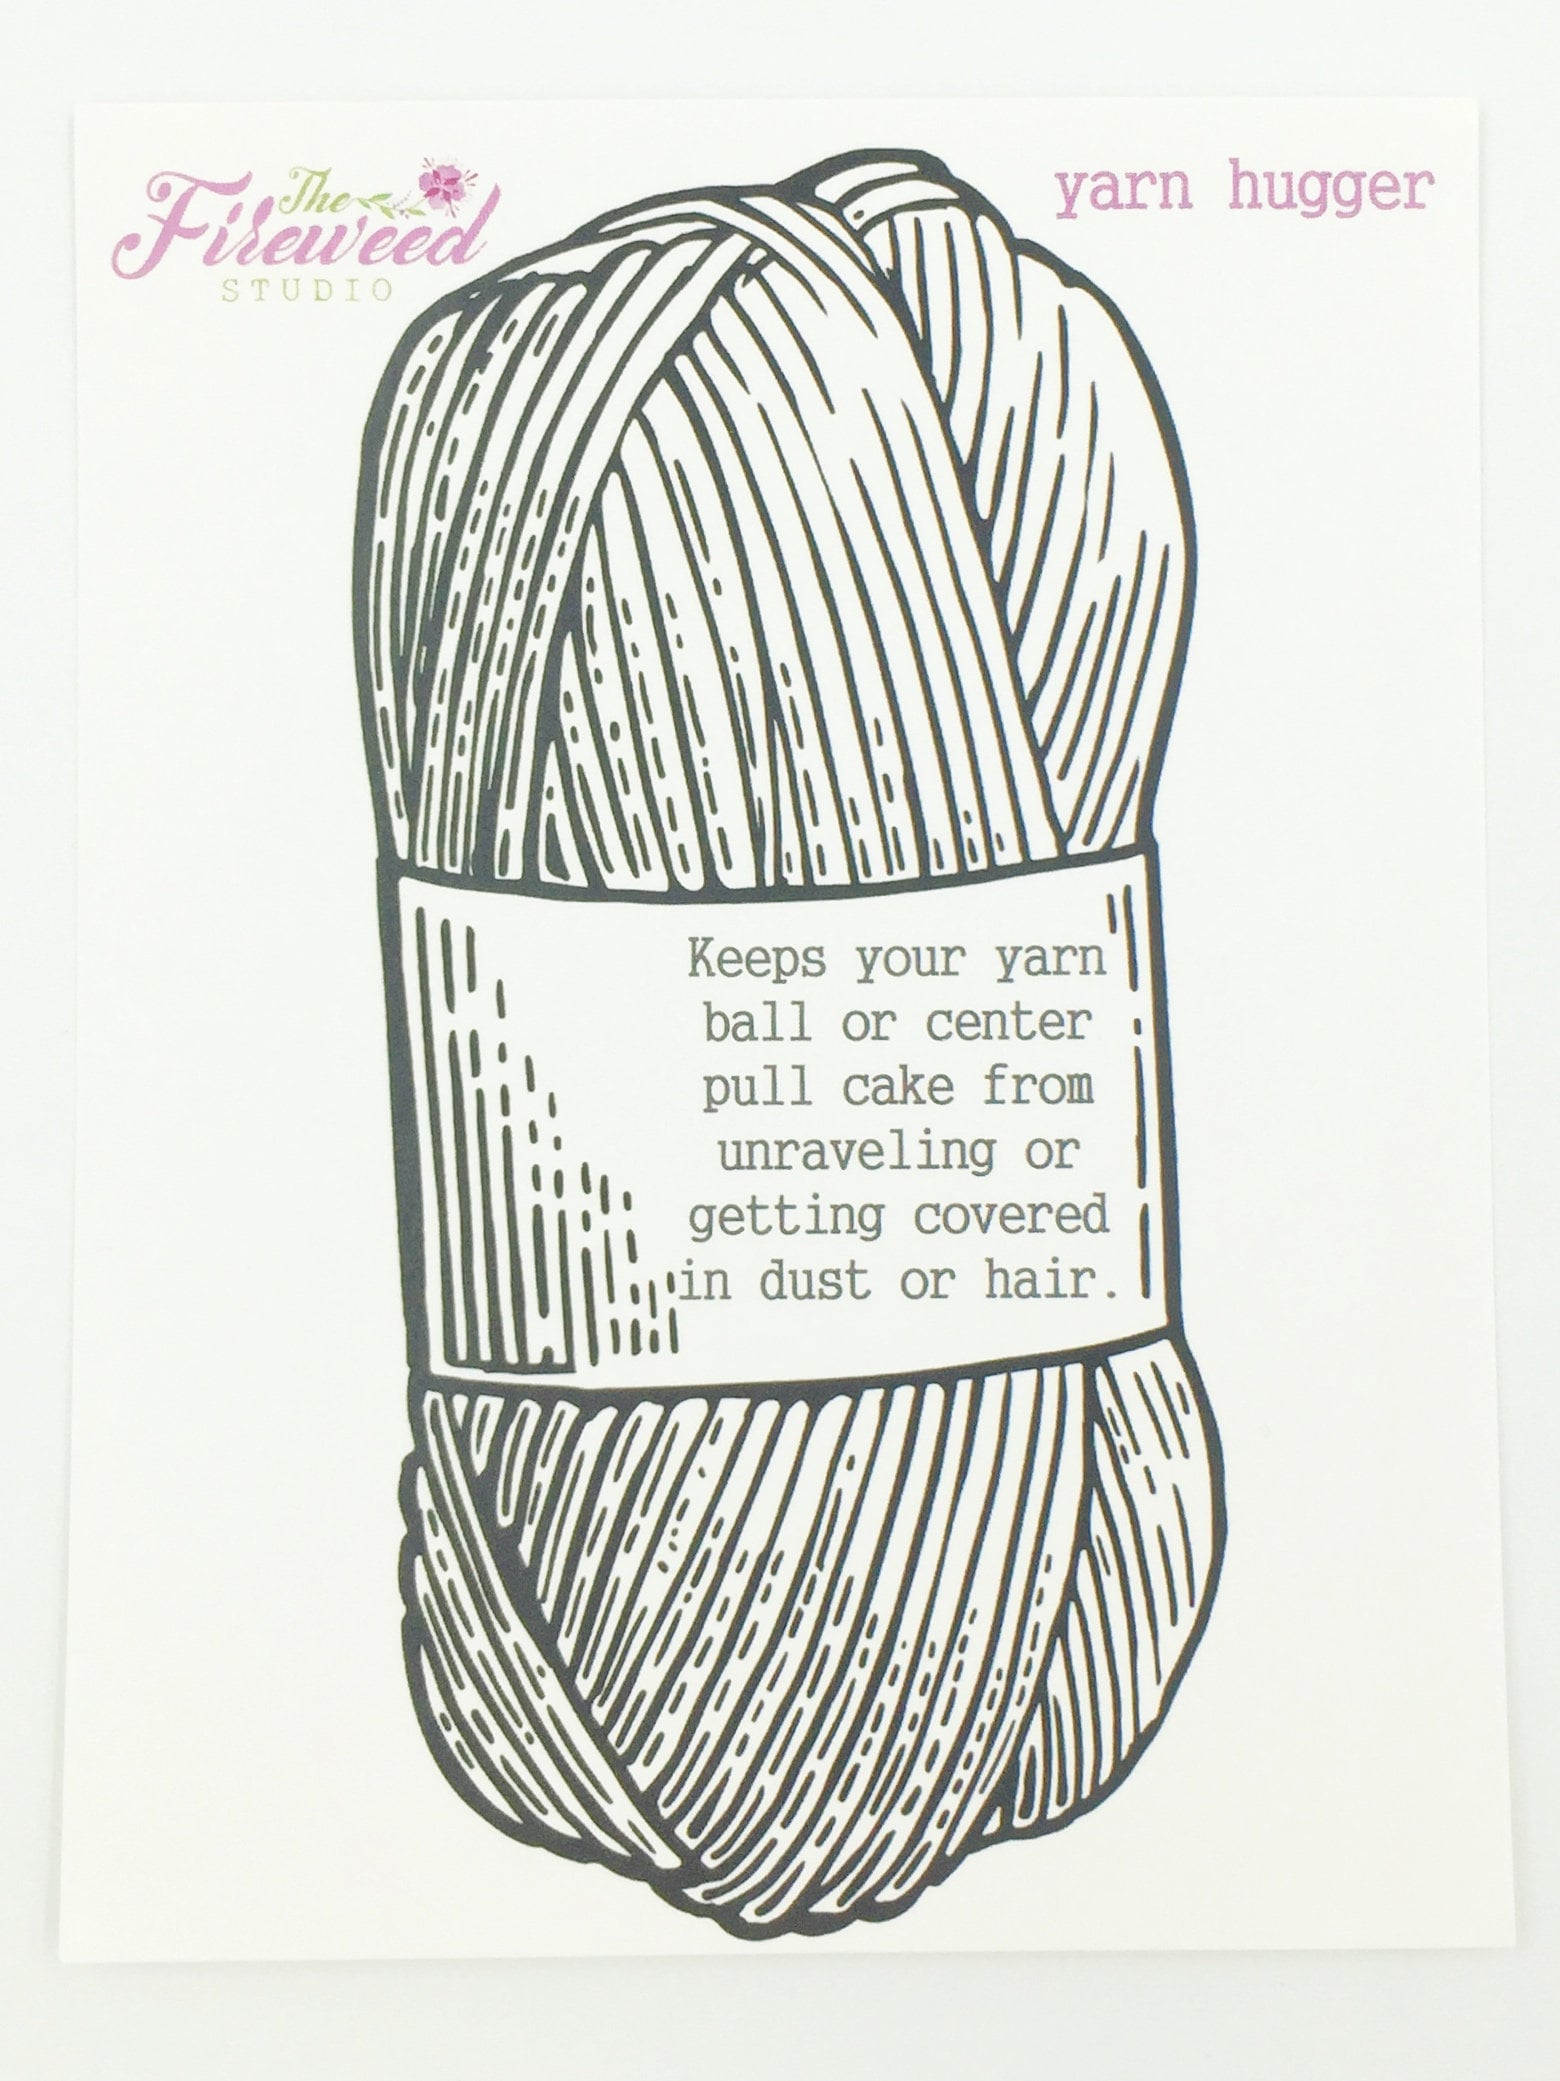 The
Fireweed
STUDIO
yarn hugger
Keeps your yarn
ball or center
pull cake from
unraveling or
getting covered
in dust or hair.